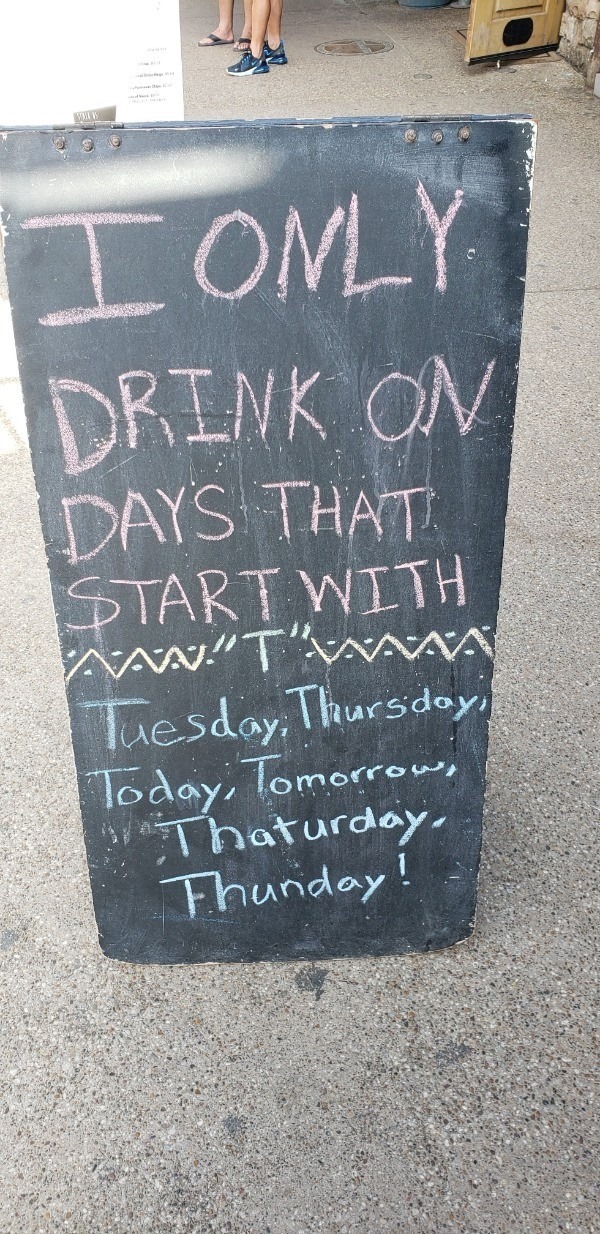 I ONLY
DRINK ON
DAYS THAT
START WITH
"T"
Tuesday, Thursday,
Today, Tomorrow,
Thaturday,
Thunday!